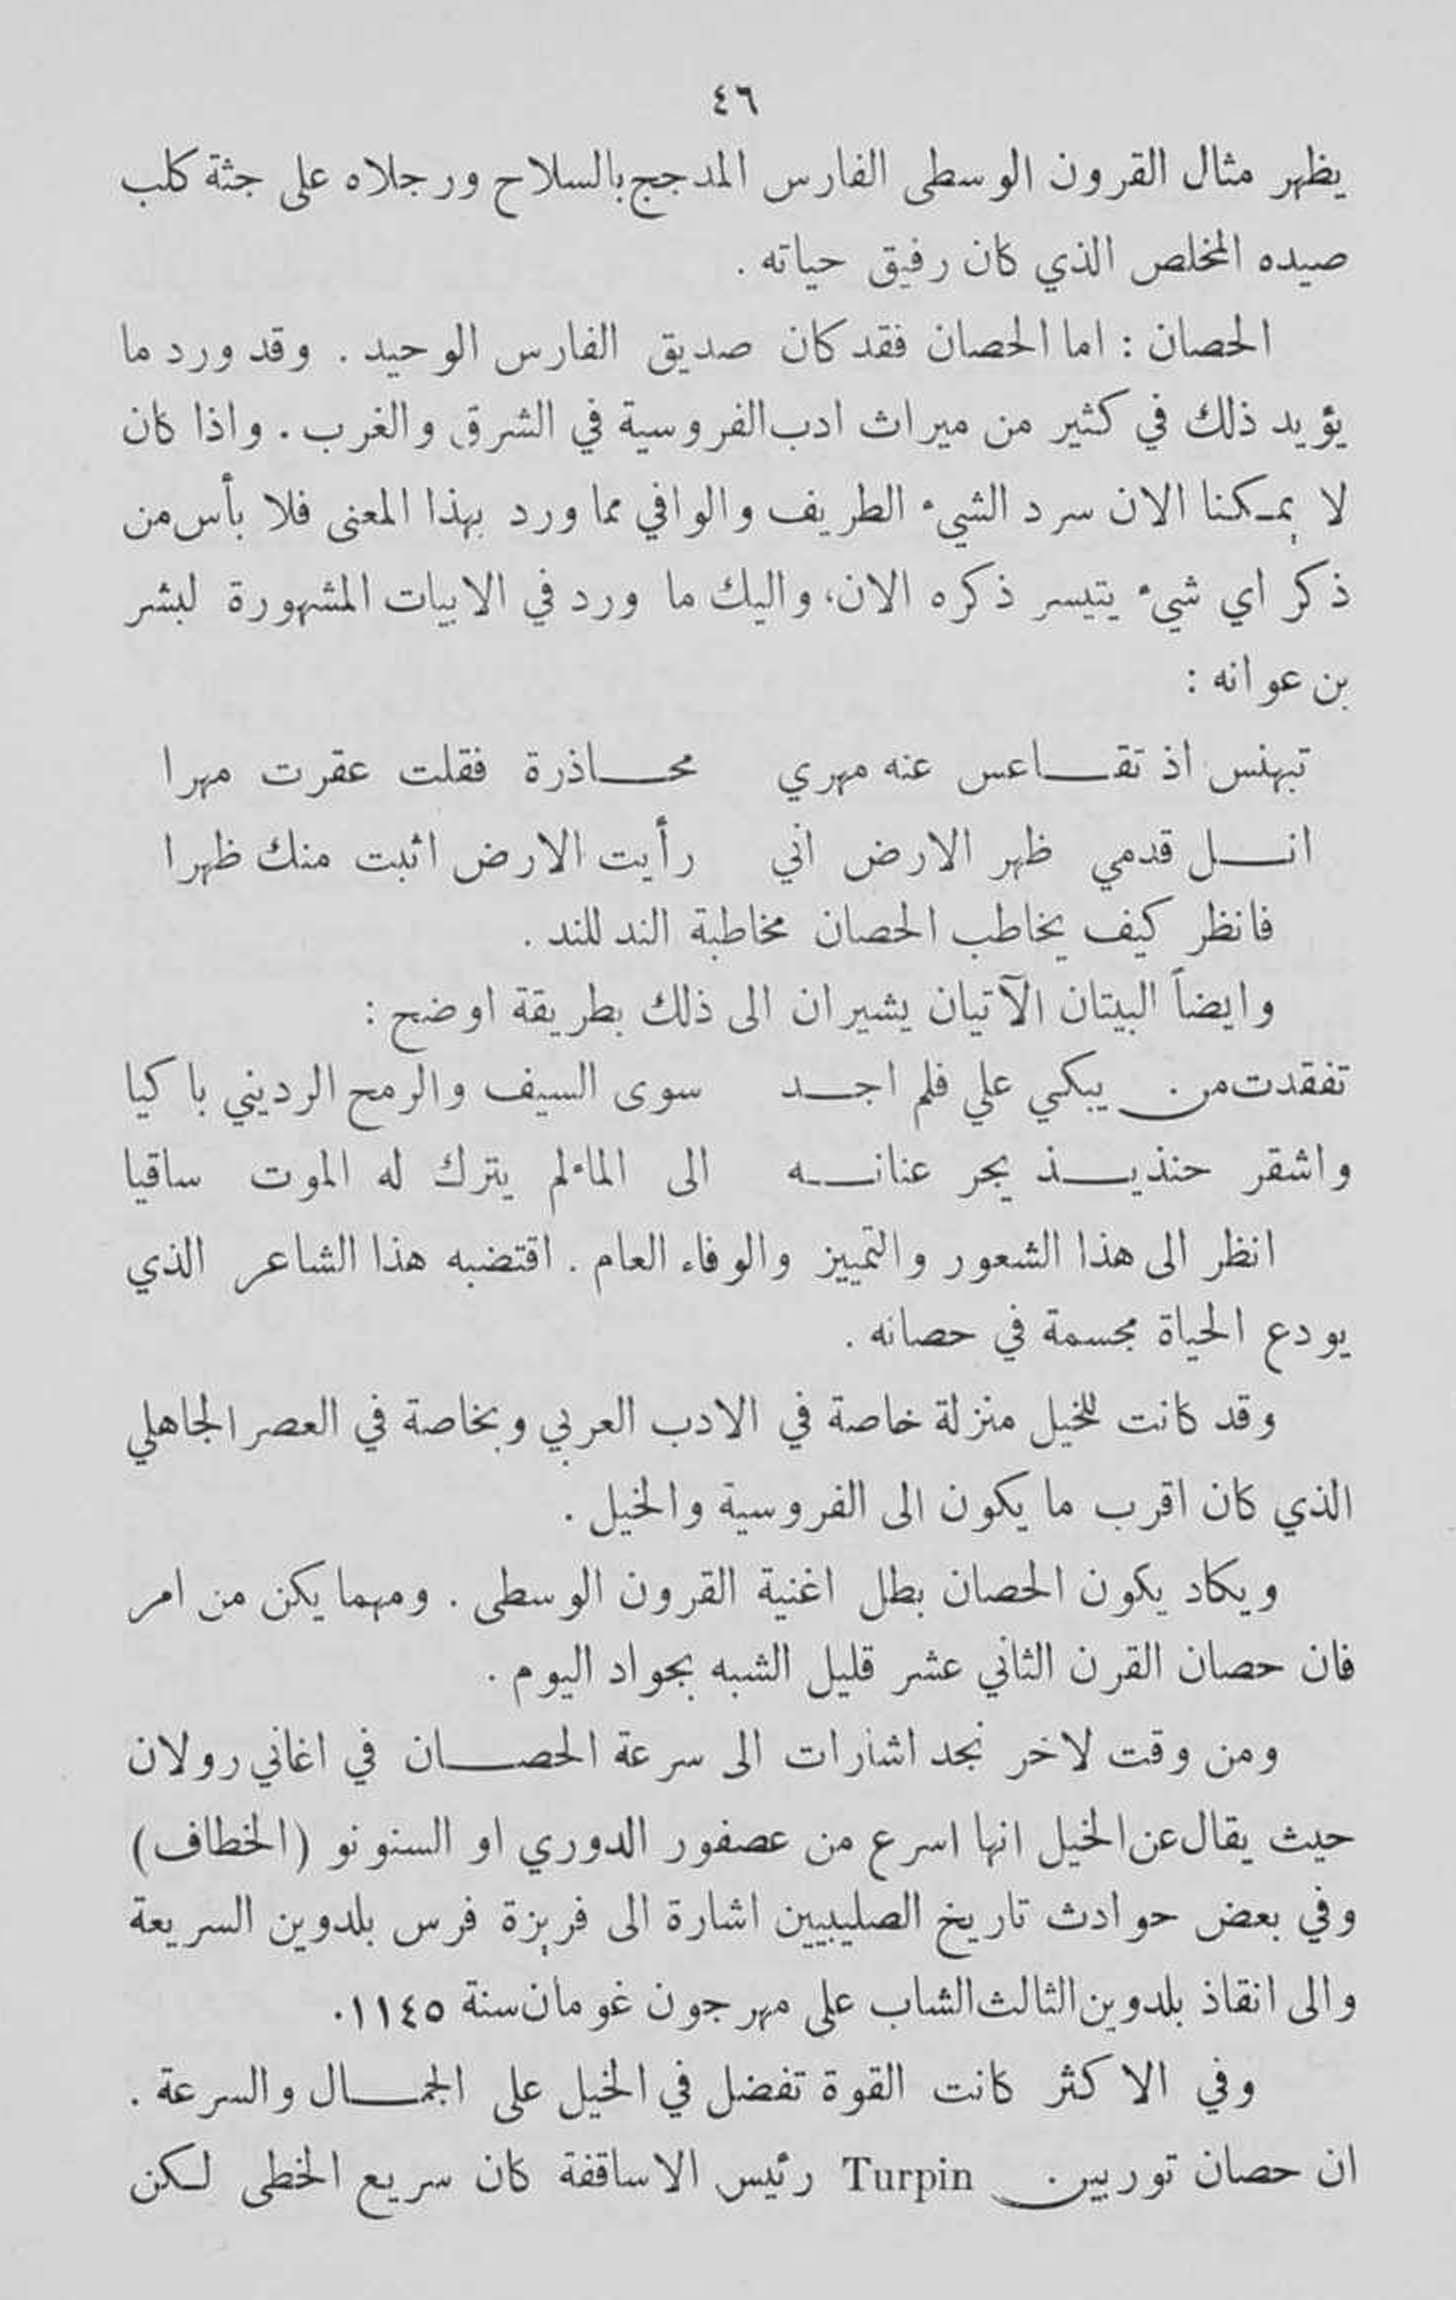 ٤٦
يظهر مثال القرون الوسطى الفارس المدجج بالسلاح ورجلاه على جثة كلب
صيده المخلص الذي كان رفيق حياته .
الحصان : اما الحصان فقد كان صديق الفارس الوحيد . وقد ورد ما
يؤيد ذلك في كثير من ميراث ادب الفروسية في الشرق والغرب . واذا كان
لا يمكننا الان سرد الشيء الطريف والوافي مما ورد بهذا المعنى فلا بأس من
ذكر اي شيء يتيسر ذكره الان، واليك ما ورد في الابيات المشهورة لبشر
بن عوانه :
تبهنس اذ تقاعس عنه مهري محاذرة فقلت عقرت مهرا
انل قدمي ظهر الارض اني رأيت الارض اثبت منك ظهرا
فانظر كيف يخاطب الحصان مخاطبة الند للند .
وايضاً البيتان الآتيان يشيران الى ذلك بطريقة اوضح :
تفقدت من يبكي علي فلم اجد سوى السيف والرمح الرديني باكيا
واشقر حنذيذ يجر عنانه الى الماء لم يترك له الموت ساقيا
انظر الى هذا الشعور والتمييز والوفاء العام . اقتضبه هذا الشاعر الذي
يودع الحياة مجسمة في حصانه .
وقد كانت للخيل منزلة خاصة في الادب العربي وبخاصة في العصر الجاهلي
الذي كان اقرب ما يكون الى الفروسية والخيل .
ويكاد يكون الحصان بطل اغنية القرون الوسطى . ومهما يكن من امر
فان حصان القرن الثاني عشر قليل الشبه بجواد اليوم .
ومن وقت لاخر نجد اشارات الى سرعة الحصان في اغاني رولان
حيث يقال عن الخيل انها اسرع من عصفور الدوري او السنونو (الخطاف)
وفي بعض حوادث تاريخ الصليبيين اشارة الى فريزة فرس بلدوين السريعة
والى انقاذ بلدوين الثالث الشاب على مهر جون غومان سنة ١١٤٥.
وفي الاكثر كانت القوة تفضل في الخيل على الجمال والسرعة .
ان حصان توربين Turpin رئيس الاساقفة كان سريع الخطى لكن